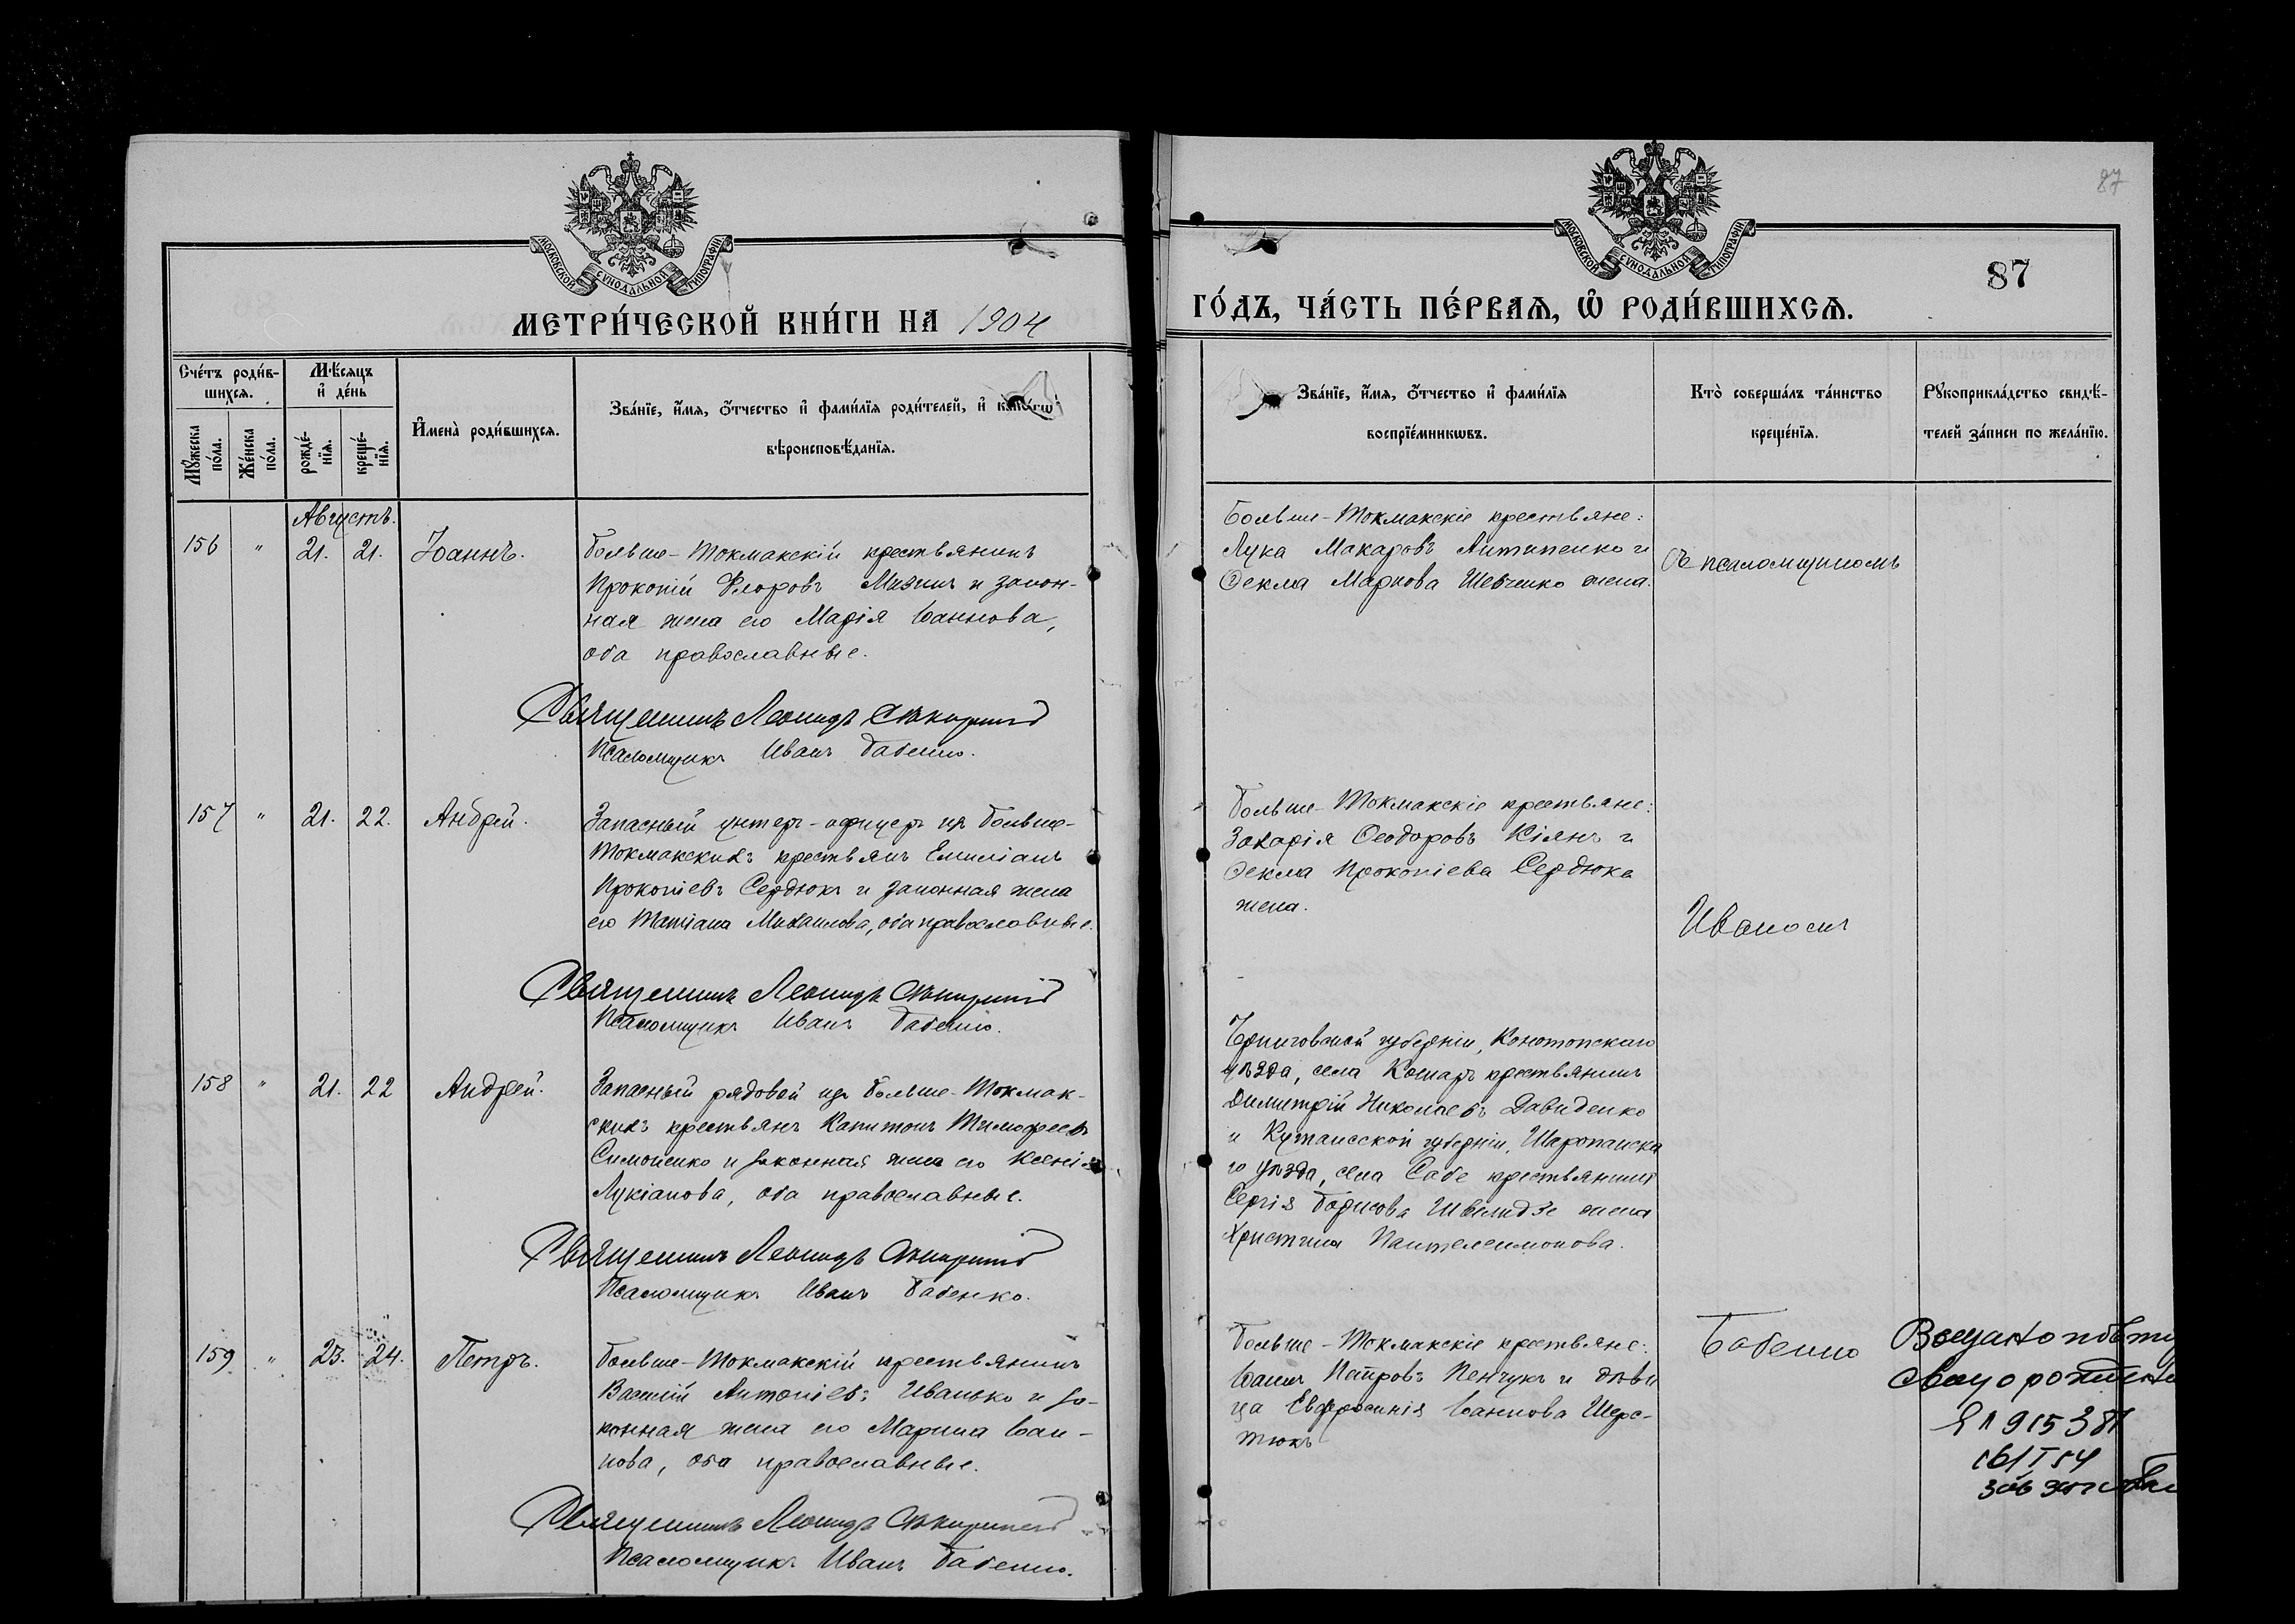 87
МОСКОВСКОЙ СѴНОДАЛЬНОЙ ТИПОГРАФІИ
МЕТРИ́ЧЕСКОЙ КНИ́ГИ НА 1904
Сче́тъ роди́в-
шихсѧ.
Мꙋ́жеска по́ла.
Же́нска по́ла.
Мѣ́сѧцъ
и҆ де́нь
рожде́-
нїѧ.
креще́-
нїѧ.
И҆мена̀ роди́вшихсѧ.
Зва́нїе, и҆́мѧ, ѻ҆́тчество и҆ фами́лїѧ роди́телей, и҆ како́гѡ
вѣроисповѣ́данїѧ.
Августъ.
156 " 21. 21. Іоаннъ.
Больше-Токмакскій крестьянинъ
Прокопій Флоровъ и закон-
ная жена его Марія Іоаннова,
оба православные.
Священникъ Леонидъ
Псаломщикъ Иванъ Бабенко.
157 " 21. 22. Андрей.
Запасный унтеръ-офицеръ изъ Больше-
Токмакскихъ крестьянъ Емиліанъ
Прокопіевъ Сердюкъ и законная жена
его Татіана Михаилова, оба православные.
Священникъ Леонидъ
Псаломщикъ Иванъ Бабенко.
158 " 21. 22 Андрей.
Запасный рядовой изъ Больше-Токмак-
скихъ крестьянъ Капитонъ Тимофеевъ
Симоненко и законная жена его Ксенія
Лукіанова, оба православные.
Священникъ Леонидъ
Псаломщикъ Иванъ Бабенко.
159 " 23. 24. Петръ.
Больше-Токмакскій крестьянинъ
Василій Антоніевъ Иванько и за-
конная жена его Марина Іоан-
нова, оба православные.
Священникъ Леонидъ
Псаломщикъ Иванъ Бабенко.
МОСКОВСКОЙ СѴНОДАЛЬНОЙ ТИПОГРАФІИ
87
ГО́ДЪ, ЧА́СТЬ ПЕ́РВАѦ, Ѡ҆ РОДИ́ВШИХСѦ.
Зва́нїе, и҆́мѧ, ѻ҆́тчество и҆ фами́лїѧ
воспрїе́мникѡвъ.
Кто̀ соверша́лъ та́инство
креще́нїѧ.
Рꙋкоприкла́дство свидѣ́-
телей за́писи по жела́нїю.
Больше-Токмакскіе крестьяне:
Лука Макаровъ Антипенко и
Ѳекла Маркова Шевченко жена.
Съ псаломщикомъ
Больше-Токмакскіе крестьяне:
Захарія Ѳеодоровъ Кіянъ и
Ѳекла Прокопіева Сердюка
жена.
Иваномъ
Черниговской губерніи, Конотопскаго
уѣзда, села крестьянинъ
Димитрій Николаевъ Давиденко
и Кутаисской губерніи, Шаропанска
го уѣзда, села Сабе крестьянина
Сергія Борисова Швелидзе жена
Христина Пантелеимонова.
Больше-Токмакскіе крестьяне:
Іоаннъ Петровъ Пенчукъ и дѣви
ца Евфросинія Іоаннова Шерс-
тюкъ
Бабенко